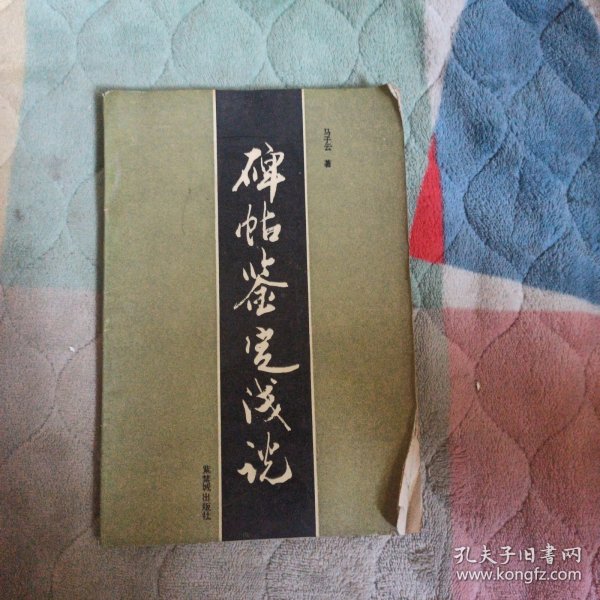 马子云 著
碑帖鉴定浅说
紫禁城出版社
孔夫子旧书网
www.kongfz.com